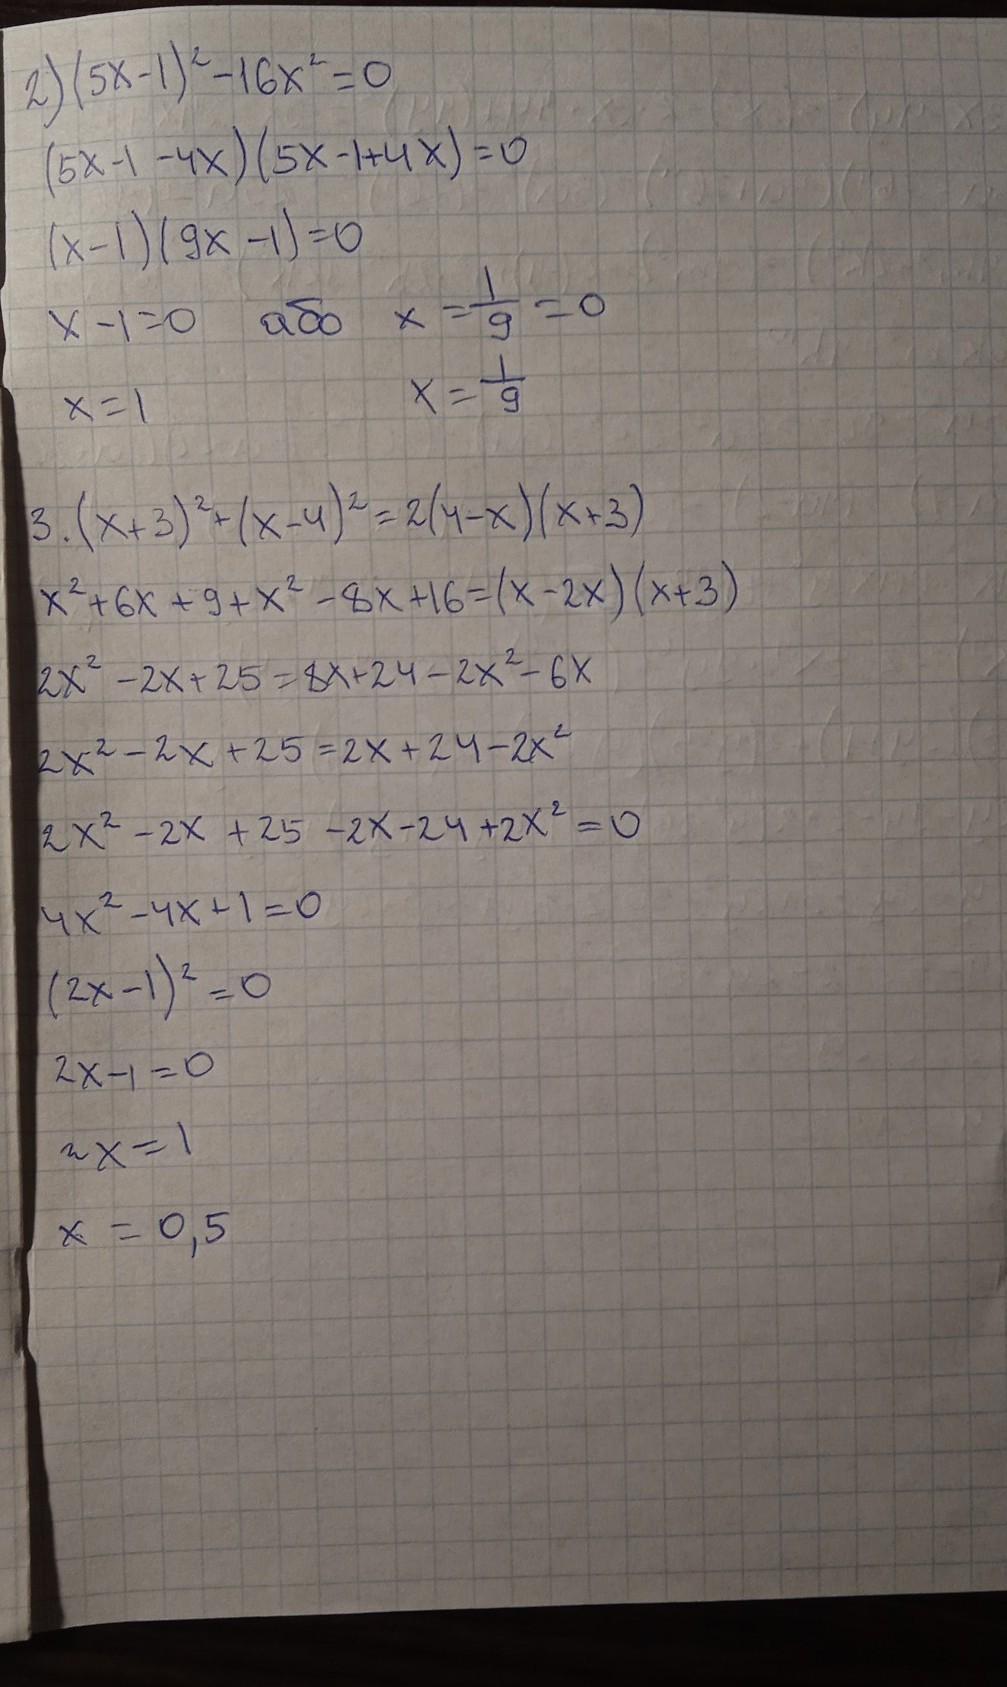 2) (5x-1)² - 16x² = 0
(5x-1-4x)(5x-1+4x) = 0
(x-1)(9x-1) = 0
x-1=0 або x = 1/9 = 0
x=1 x = 1/9
3. (x+3)² + (x-4)² = 2(4-x)(x+3)
x² + 6x + 9 + x² - 8x + 16 = (x-2x)(x+3)
2x² - 2x + 25 = 8x + 24 - 2x² - 6x
2x² - 2x + 25 = 2x + 24 - 2x²
2x² - 2x + 25 - 2x - 24 + 2x² = 0
4x² - 4x + 1 = 0
(2x-1)² = 0
2x-1 = 0
2x = 1
x = 0,5